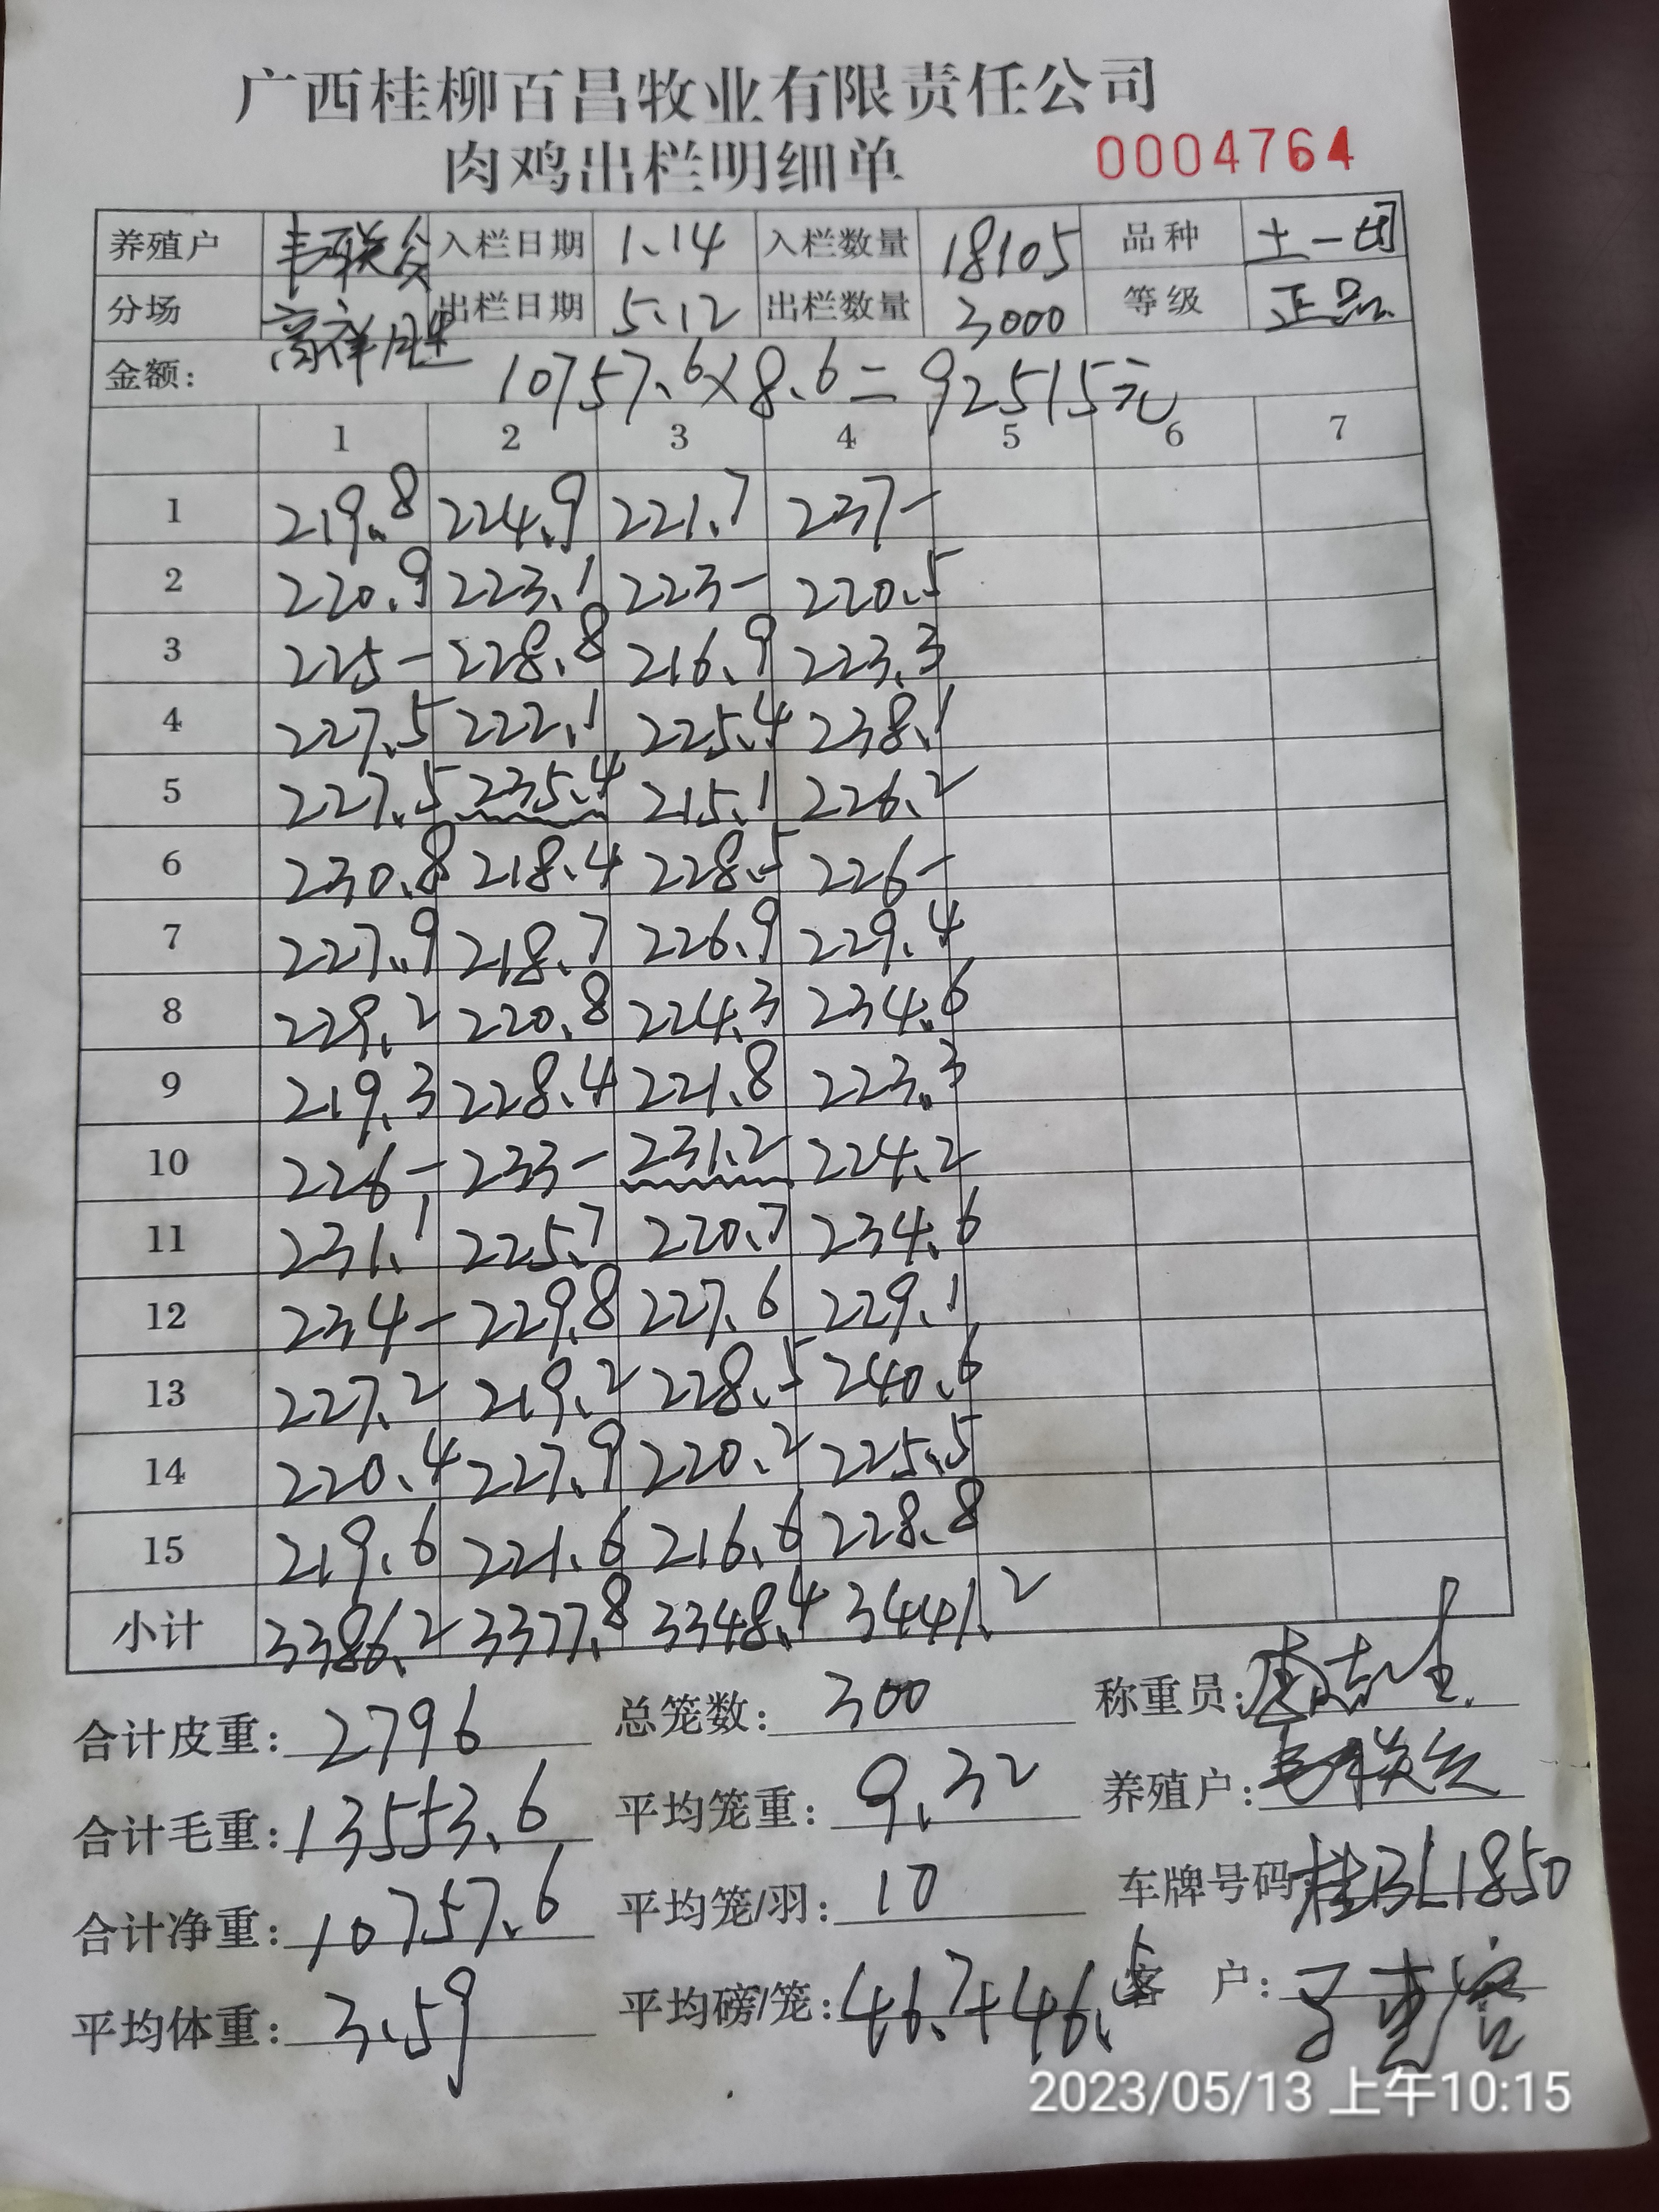 广西桂柳百昌牧业有限责任公司
肉鸡出栏明细单 0004764
养殖户 入栏日期 1.14 入栏数量 18105 品种 土一
分场 高祥 出栏日期 5.12 出栏数量 3000 等级 正品
金额: 10757.6×8.6=92515元
1 2 3 4 5 6 7
1 219.8 224.9 221.7 237-
2 220.9 223.1 223- 220.5
3 225- 228.8 216.9 223.3
4 227.5 222.1 225.4 238.1
5 227.5 235.4 215.1 226.2
6 230.8 218.4 228.5 226-
7 227.9 218.7 226.9 229.4
8 229.2 220.8 224.3 234.6
9 219.3 228.4 221.8 223.3
10 226- 233- 231.2 224.2
11 231.1 225.7 220.7 234.6
12 234- 229.8 227.6 229.1
13 227.2 219.2 228.5 240.6
14 220.4 227.9 220.2 225.5
15 219.6 221.6 216.6 228.8
小计 3386.2 3377.8 3348.4 3441.2
合计皮重: 2796 总笼数: 300 称重员:
合计毛重: 13553.6 平均笼重: 9.32 养殖户:
合计净重: 10757.6 平均笼/羽: 10 车牌号码 桂BL1850
平均体重: 3.59 平均磅/笼: 46.7+46.5 客 户:
2023/05/13 上午10:15